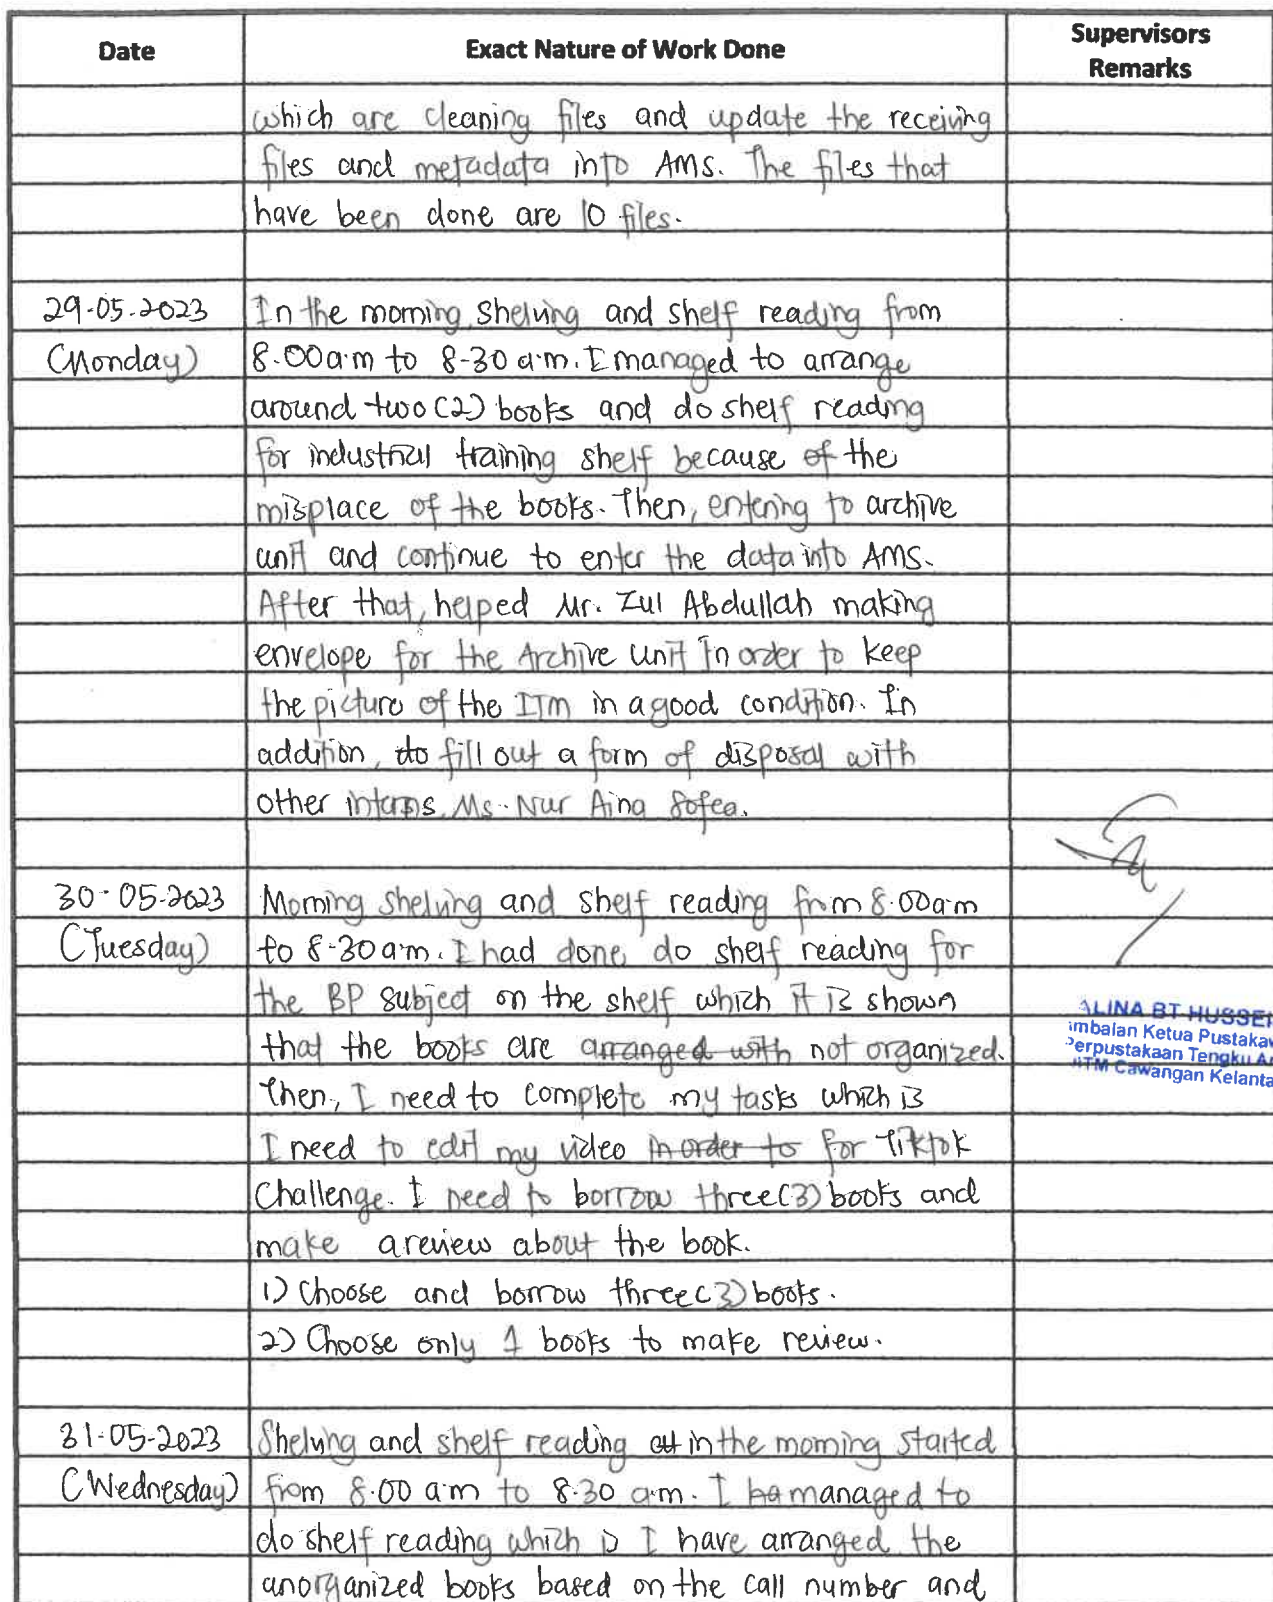 Date Exact Nature of Work Done Supervisors Remarks
which are cleaning files and update the receiving
files and metadata into AMS. The files that
have been done are 10 files.
29-05-2023 In the morning, shelving and shelf reading from
(Monday) 8.00a.m to 8.30 a.m. I managed to arrange
around two (2) books and do shelf reading
for industrial training shelf because of the
misplace of the books. Then, entering to archive
unit and continue to enter the data into AMS.
After that, helped Mr. Zul Abdullah making
envelope for the Archive unit in order to keep
the picture of the ITM in a good condition. In
addition, to fill out a form of disposal with
other interns, Ms. Nur Aina Sofea.
30-05-2023 Morning shelving and shelf reading from 8.00am
(Tuesday) to 8.30am. I had done, do shelf reading for
the BP subject on the shelf which it is shown
that the books are arranged with not organized.
Then, I need to complete my tasks which is
I need to edit my video in order to for Tiktok
Challenge. I need to borrow three(3) books and
make a review about the book.
1) Choose and borrow three(3) books.
2) Choose only 1 books to make review.
ALINA BT HUSSEI
imbalan Ketua Pustakaw
Perpustakaan Tengku A
UiTM Cawangan Kelanta
31-05-2023 Shelving and shelf reading at in the morning started
(Wednesday) from 8.00 am to 8.30 a.m. I ha managed to
do shelf reading which is I have arranged the
anorganized books based on the call number and